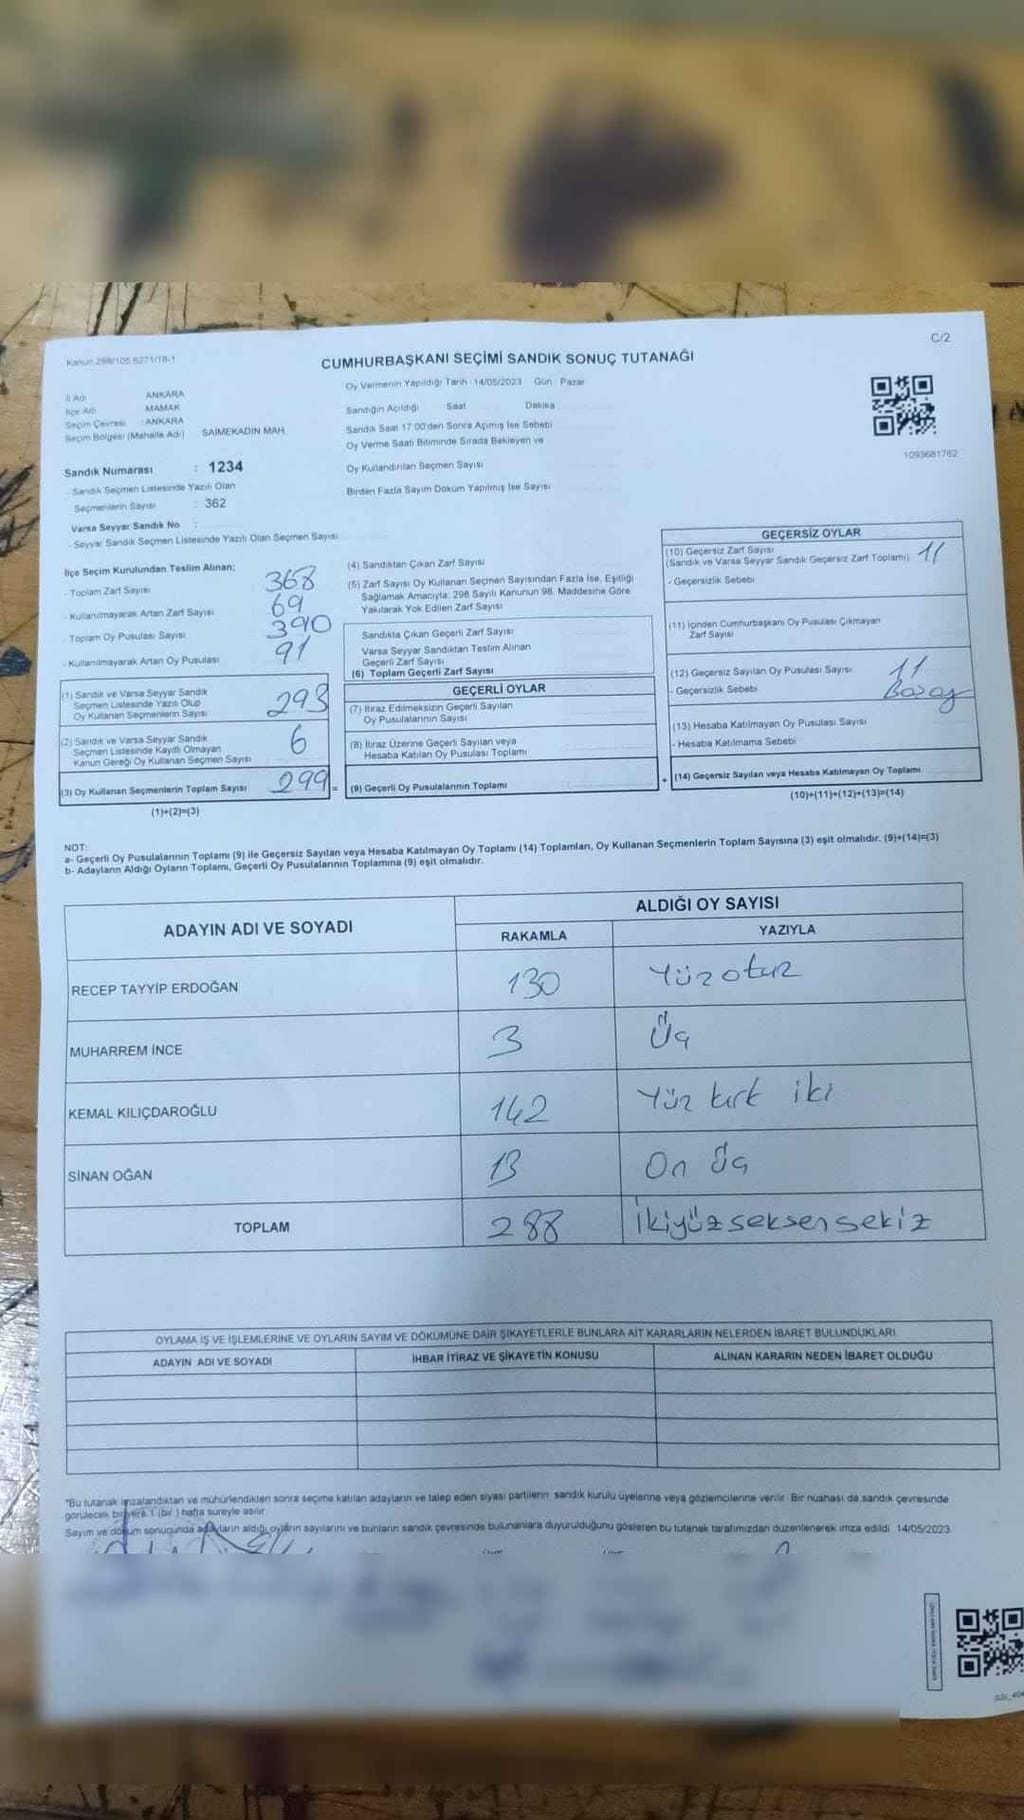 C/2
Kanun 298/105 6271/18-1
CUMHURBAŞKANI SEÇİMİ SANDIK SONUÇ TUTANAĞI
İl Adı ANKARA
İlçe Adı MAMAK
Seçim Çevresi : ANKARA
Seçim Bölgesi (Mahalle Adı) SAİMEKADIN MAH.
Sandık Numarası : 1234
- Sandık Seçmen Listesinde Yazılı Olan
Seçmenlerin Sayısı : 362
Varsa Seyyar Sandık No :
- Seyyar Sandık Seçmen Listesinde Yazılı Olan Seçmen Sayısı
Oy Vermenin Yapıldığı Tarih : 14/05/2023 Gün : Pazar
Sandığın Açıldığı Saat Dakika
Sandık Saat 17:00'den Sonra Açımış İse Sebebi
Oy Verme Saati Bitiminde Sırada Bekleyen ve
Oy Kullandırılan Seçmen Sayısı
Birden Fazla Sayım Döküm Yapılmış İse Sayısı
1093681762
İlçe Seçim Kurulundan Teslim Alınan;
- Toplam Zarf Sayısı 368
- Kullanılmayarak Artan Zarf Sayısı 69
- Toplam Oy Pusulası Sayısı 390
- Kullanılmayarak Artan Oy Pusulası 91
(1) Sandık ve Varsa Seyyar Sandık
Seçmen Listesinde Yazılı Olup
Oy Kullanan Seçmenlerin Sayısı 293
(2) Sandık ve Varsa Seyyar Sandık
Seçmen Listesinde Kayıtlı Olmayan
Kanun Gereği Oy Kullanan Seçmen Sayısı 6
(3) Oy Kullanan Seçmenlerin Toplam Sayısı 299 =
(1)+(2)=(3)
(4) Sandıktan Çıkan Zarf Sayısı
(5) Zarf Sayısı Oy Kullanan Seçmen Sayısından Fazla İse, Eşitliği
Sağlamak Amacıyla; 298 Sayılı Kanunun 98. Maddesine Göre
Yakılarak Yok Edilen Zarf Sayısı
Sandıkta Çıkan Geçerli Zarf Sayısı
Varsa Seyyar Sandıktan Teslim Alınan
Geçerli Zarf Sayısı
(6) Toplam Geçerli Zarf Sayısı
GEÇERLİ OYLAR
(7) İtiraz Edilmeksizin Geçerli Sayılan
Oy Pusulalarının Sayısı
(8) İtiraz Üzerine Geçerli Sayılan veya
Hesaba Katılan Oy Pusulası Toplamı
(9) Geçerli Oy Pusulalarının Toplamı +
GEÇERSİZ OYLAR
(10) Geçersiz Zarf Sayısı
(Sandık ve Varsa Seyyar Sandık Geçersiz Zarf Toplamı) 11
- Geçersizlik Sebebi
(11) İçinden Cumhurbaşkanı Oy Pusulası Çıkmayan
Zarf Sayısı
(12) Geçersiz Sayılan Oy Pusulası Sayısı 11
- Geçersizlik Sebebi
(13) Hesaba Katılmayan Oy Pusulası Sayısı
- Hesaba Katılmama Sebebi
(14) Geçersiz Sayılan veya Hesaba Katılmayan Oy Toplamı
(10)+(11)+(12)+(13)=(14)
NOT:
a- Geçerli Oy Pusulalarının Toplamı (9) ile Geçersiz Sayılan veya Hesaba Katılmayan Oy Toplamı (14) Toplamları, Oy Kullanan Seçmenlerin Toplam Sayısına (3) eşit olmalıdır. (9)+(14)=(3)
b- Adayların Aldığı Oyların Toplamı, Geçerli Oy Pusulalarının Toplamına (9) eşit olmalıdır.
ADAYIN ADI VE SOYADI ALDIĞI OY SAYISI
RAKAMLA YAZIYLA
RECEP TAYYİP ERDOĞAN 130 Yüz otuz
MUHARREM İNCE 3 Üç
KEMAL KILIÇDAROĞLU 142 Yüz kırk iki
SİNAN OĞAN 13 On üç
TOPLAM 288 İkiyüzseksensekiz
OYLAMA İŞ VE İŞLEMLERİNE VE OYLARIN SAYIM VE DÖKÜMÜNE DAİR ŞİKAYETLERLE BUNLARA AİT KARARLARIN NELERDEN İBARET BULUNDUKLARI
ADAYIN ADI VE SOYADI İHBAR İTİRAZ VE ŞİKAYETİN KONUSU ALINAN KARARIN NEDEN İBARET OLDUĞU
*Bu tutanak imzalandıktan ve mühürlendikten sonra seçime katılan adayların ve talep eden siyasi partilerin sandık kurulu üyelerine veya gözlemcilerine verilir. Bir nüshası da sandık çevresinde
görülecek bir yere 1 (bir) hafta süreyle asılır.
Sayım ve döküm sonucunda adayların aldığı oyların sayılarını ve bunların sandık çevresinde bulunanlara duyurulduğunu gösteren bu tutanak tarafımızdan düzenlenerek imza edildi. 14/05/2023